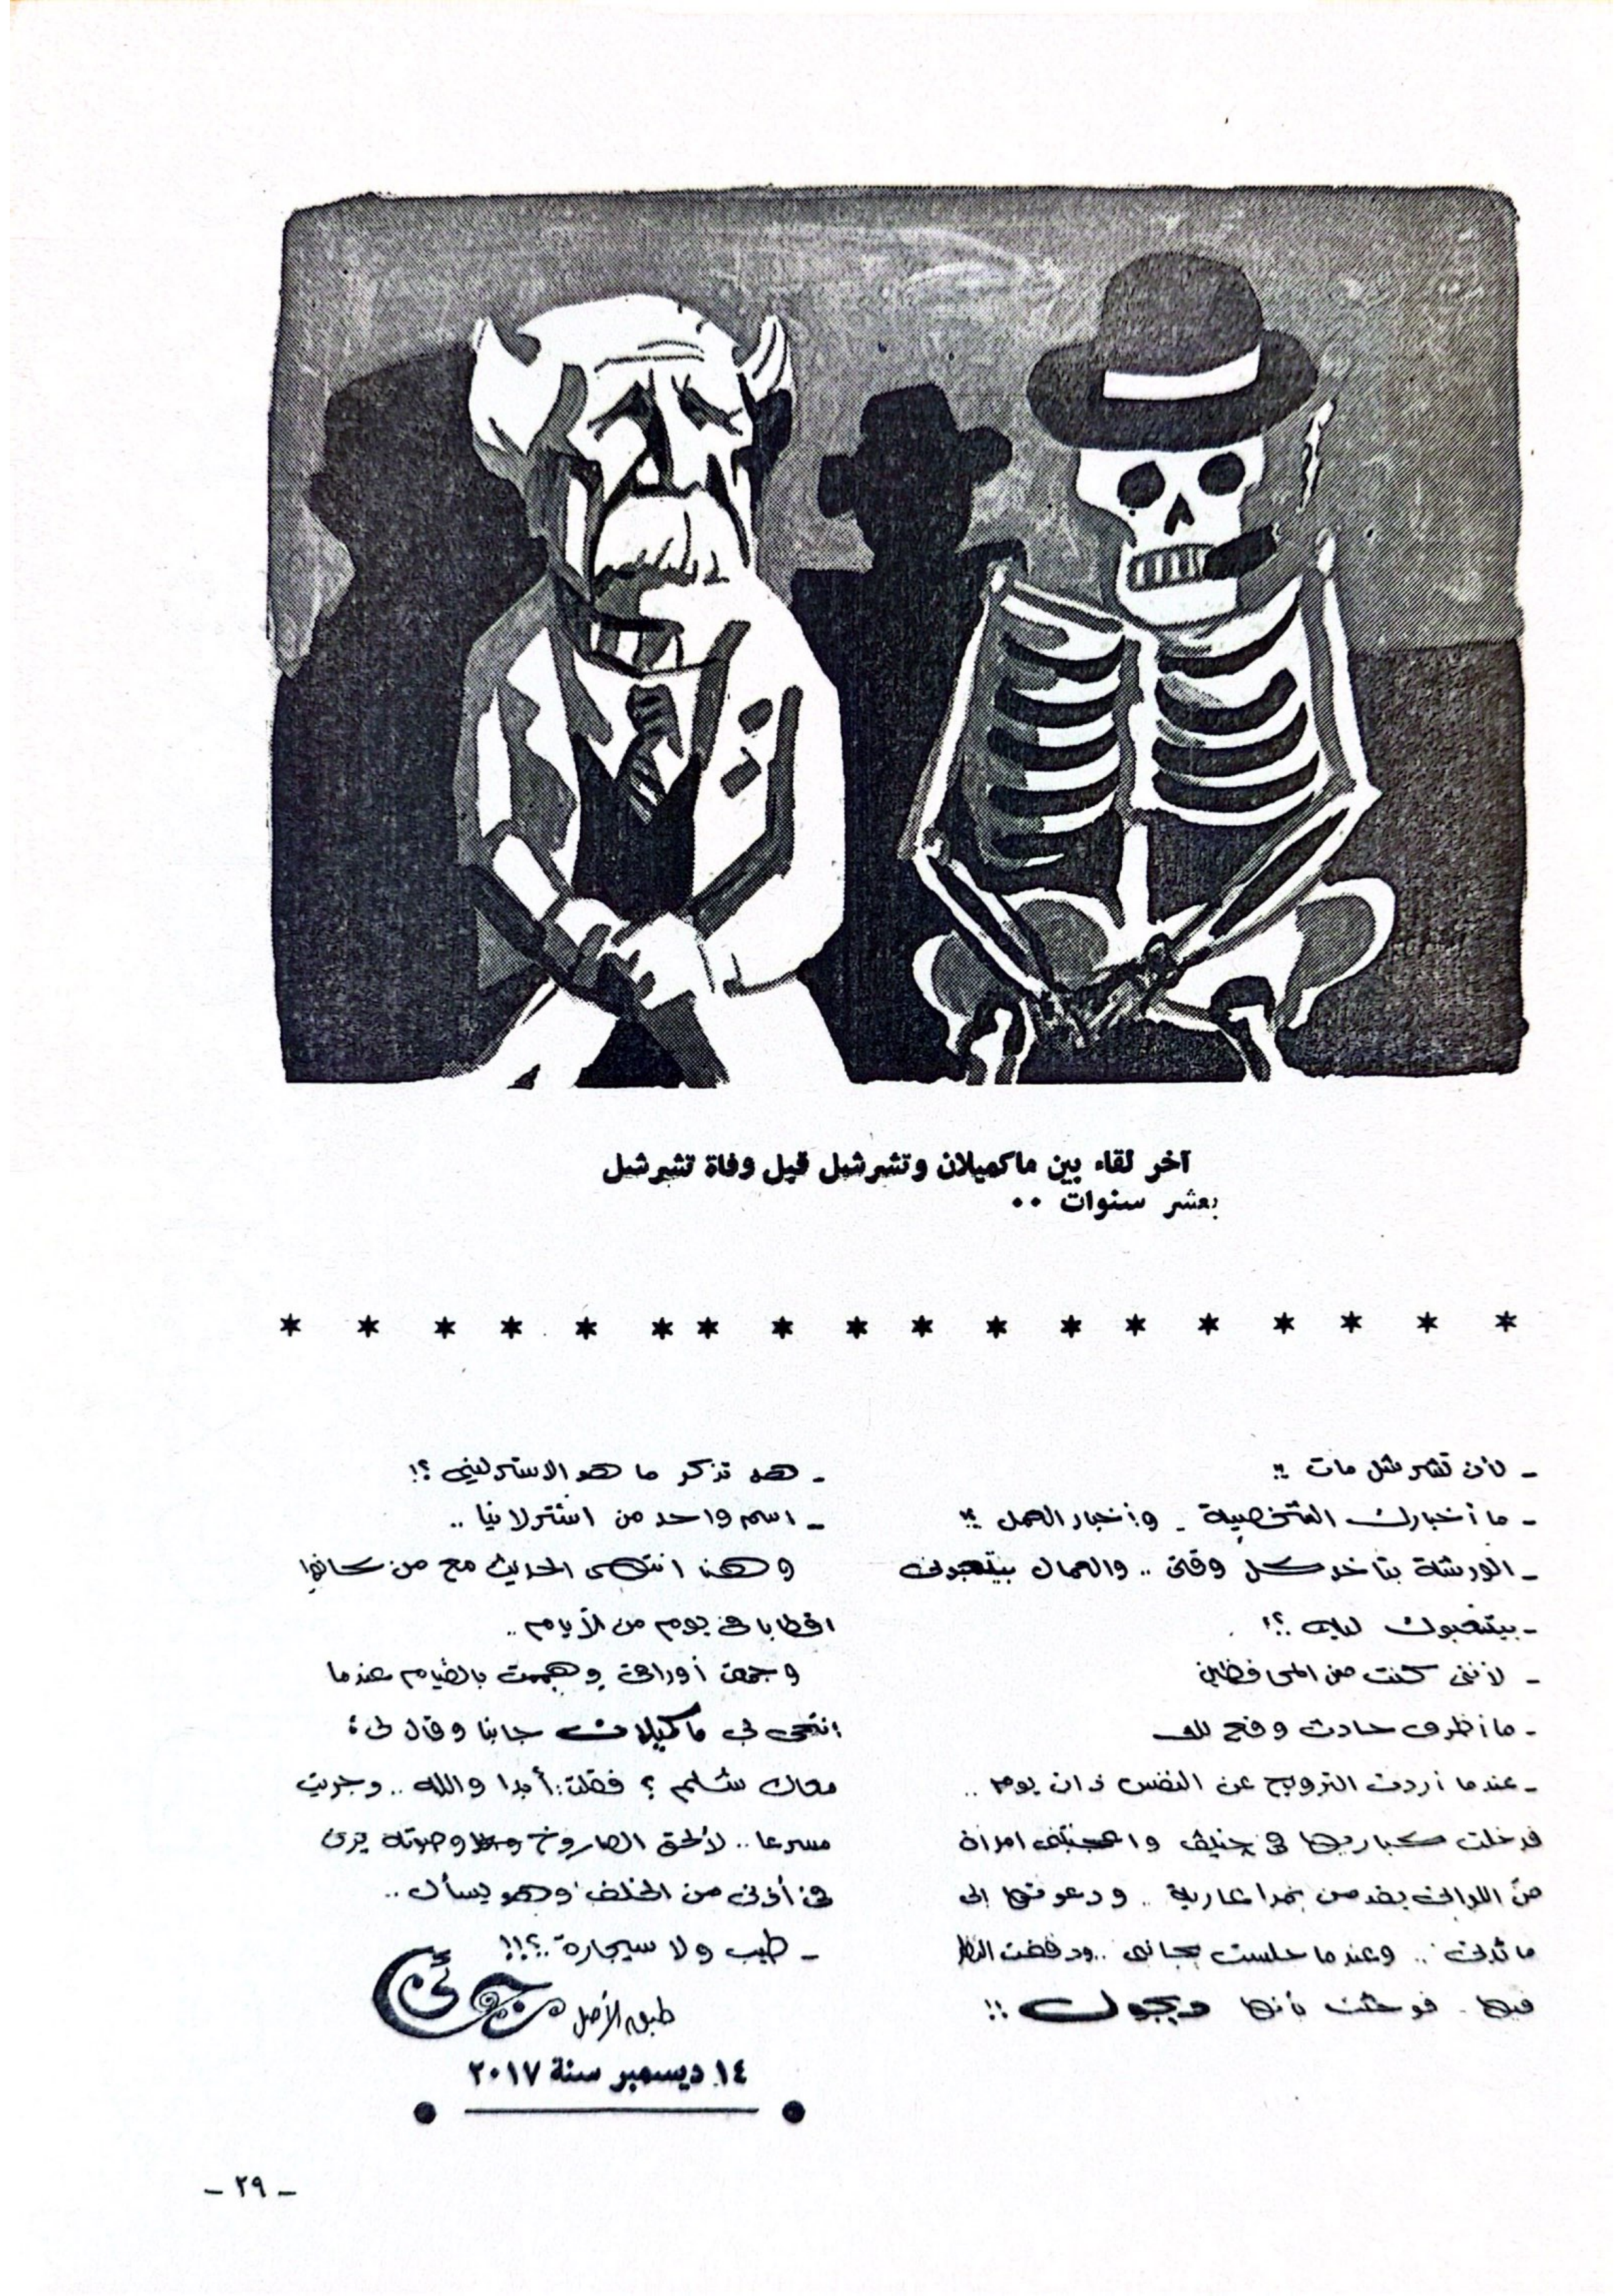 آخر لقاء بين ماكميلان وتشرشل قبل وفاة تشرشل
بعشر سنوات ..
* * * * * * * * * * * * * * * * * *
ـ لأن تشرشل مات !!
ـ ما أخبارك الشخصية ـ وأخبار العمل ؟!
ـ الورشة بتاخد كل وقتى .. والعمال بيتعبونى
ـ بيتعبوك ليه ؟!
ـ لأننى كنت من المحافظين
ـ ما أظرف حادث وقع لك
ـ عندما أردت الترويح عن النفس ذات يوم ..
فدخلت كباريها فى جنيف وأعجبتنى امرأة
من اللواتى يقدمن نمرا عارية .. ودعوتها إلى
مائدتى .. وعندما جلست بجانبى .. ودققت النظر
فيها . فوجئت بأنها ديجول !!
ـ هل تذكر ما هو الاسترلينى ؟!
ـ اسم واحد من اشترلانيا ..
وهنا انتهى الحديث مع من كانوا
اقطابا فى يوم من الأيام ..
وجمعت أوراقى وهممت بالقيام عندما
انتحى بى ماكميلان جانبا وقال لى :
معاك شلم ؟ فقلت : أبدا والله .. وجريت
مسرعا .. لألحق الصاروخ وصوته يرن
فى أذنى من الخلف وهو يسأل ..
ـ طيب ولا سيجارة .. ؟!!
طبق الأصل
١٤ ديسمبر سنة ٢٠١٧
ـ ٢٩ ـ